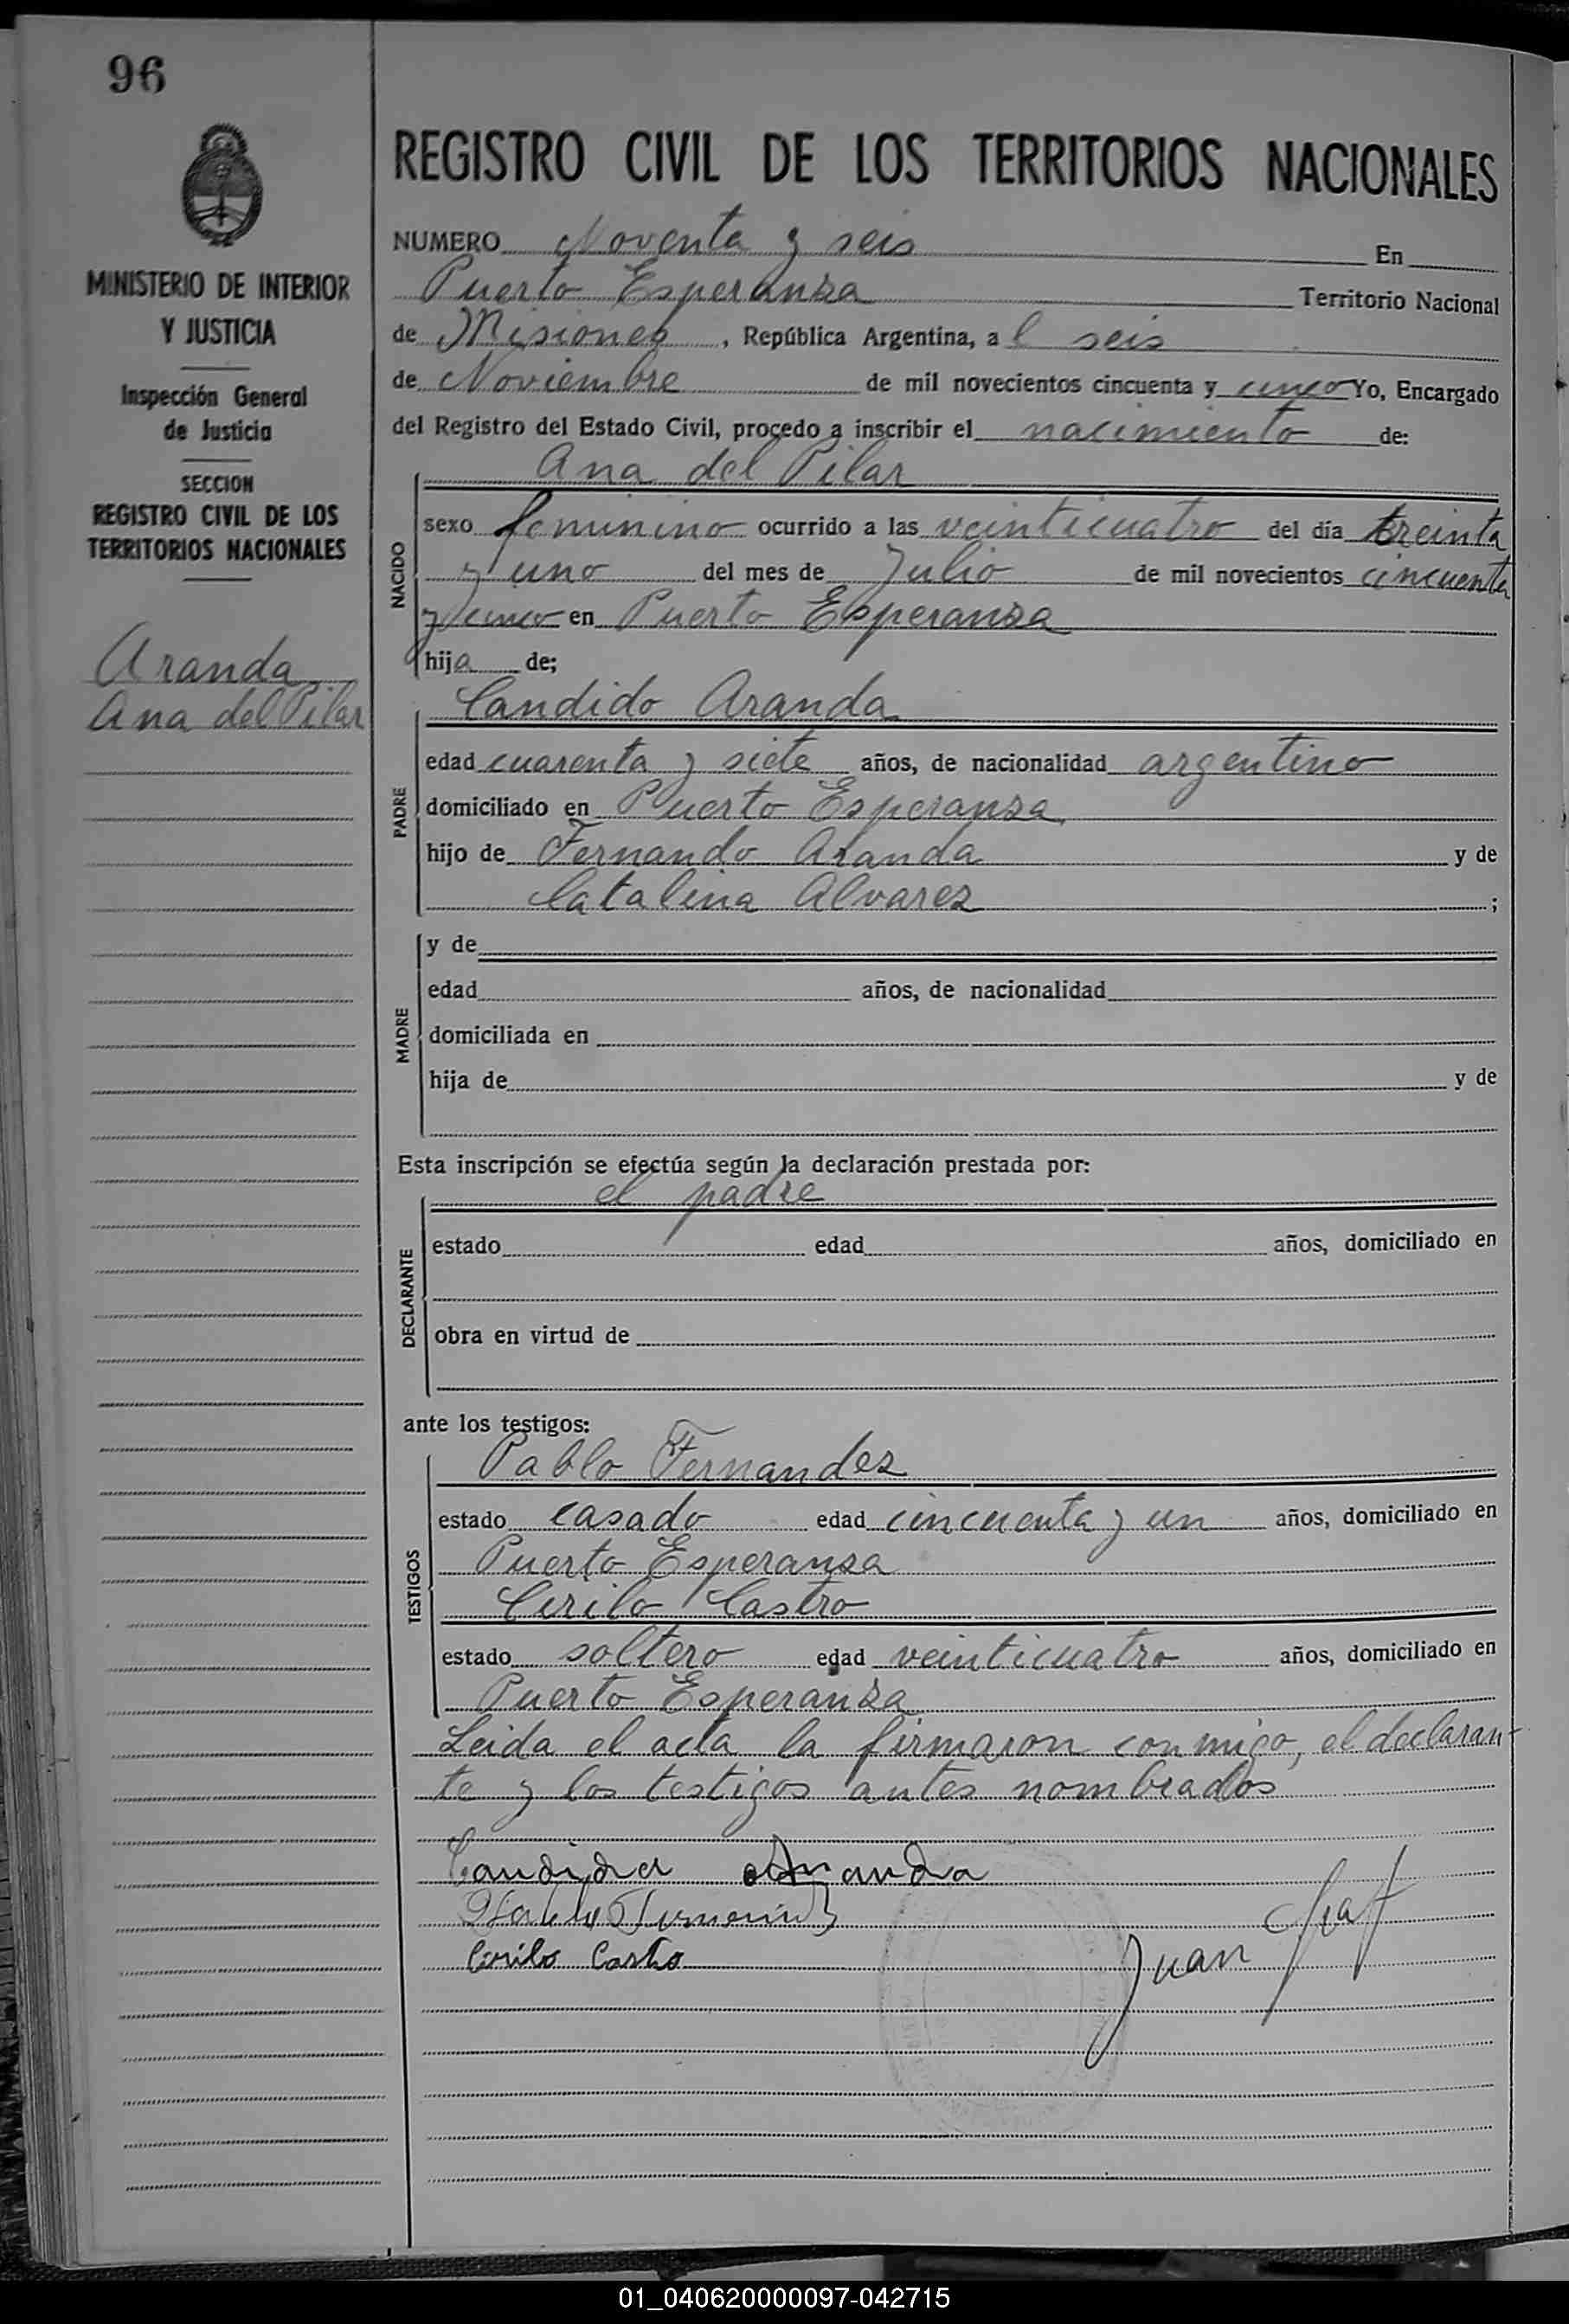 96
REGISTRO CIVIL DE LOS TERRITORIOS NACIONALES
MINISTERIO DE INTERIOR
Y JUSTICIA
Inspección General
de Justicia
SECCION
REGISTRO CIVIL DE LOS
TERRITORIOS NACIONALES
Aranda
Ana del Pilar
NUMERO Noventa y seis En
Puerto Esperanza Territorio Nacional
de Misiones, República Argentina, a l seis
de Noviembre de mil novecientos cincuenta y cinco Yo, Encargado
del Registro del Estado Civil, procedo a inscribir el nacimiento de:
NACIDO
Ana del Pilar
sexo femenino ocurrido a las veinticuatro del día treinta
y uno del mes de Julio de mil novecientos cincuenta
y cinco en Puerto Esperanza
hija de;
PADRE
Candido Aranda
edad cuarenta y siete años, de nacionalidad argentino
domiciliado en Puerto Esperanza
hijo de Fernando Aranda y de
Catalina Alvarez ;
MADRE
y de
edad años, de nacionalidad
domiciliada en
hija de y de
Esta inscripción se efectúa según la declaración prestada por:
DECLARANTE
el padre
estado edad años, domiciliado en
obra en virtud de
ante los testigos:
TESTIGOS
Pablo Fernandez
estado casado edad cincuenta y un años, domiciliado en
Puerto Esperanza
Cirilo Castro
estado soltero edad veinticuatro años, domiciliado en
Puerto Esperanza
Leida el acta la firmaron conmigo, el declaran-
te y los testigos antes nombrados
Candido Aranda
Cirilo Castro
Juan
01_040620000097-042715